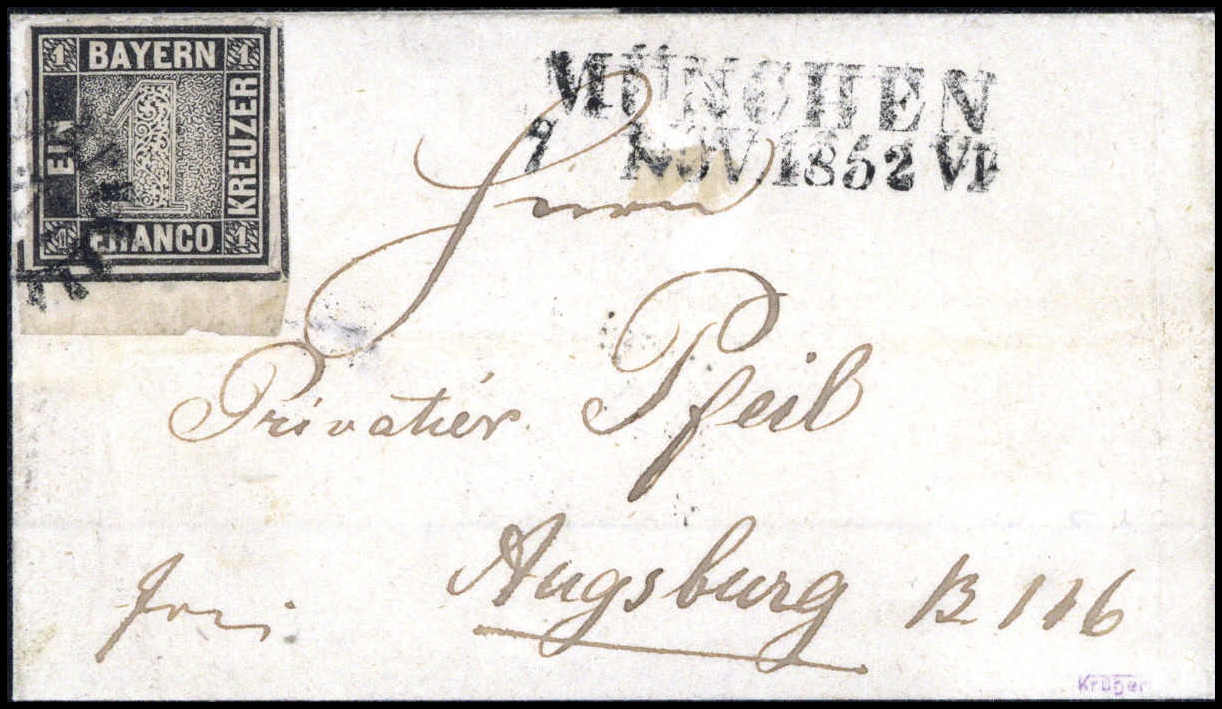 1 BAYERN 1
EIN
KREUZER
1 FRANCO 1
MÜNCHEN
7 NOV 1852 VI
Herrn
Privatiér Pfeil
Augsburg B 116
frei
Krüger